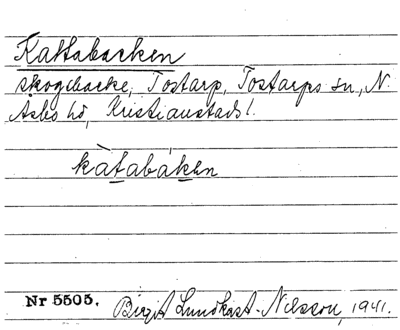 Kattabacken
skogbacke, Tostarp, Tostarps sn, N.
Åsbo hd, Kristianstads l.
kàtabáken
Nr 5505.
Birgit Lundkvist-Nilsson, 1941.